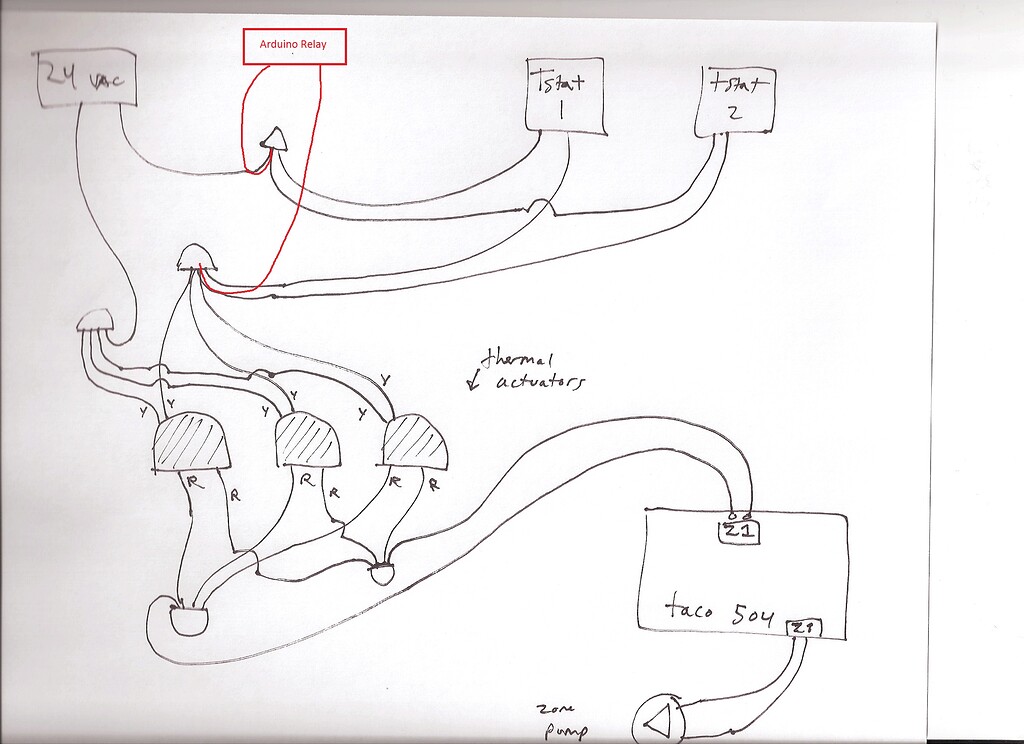 24 VAC
Arduino Relay
Tstat
1
tstat
2
thermal
↓ actuators
Y
Y
Y
Y
Y
Y
R
R
R
R
R
R
Z1
taco 504
Z1
zone
pump